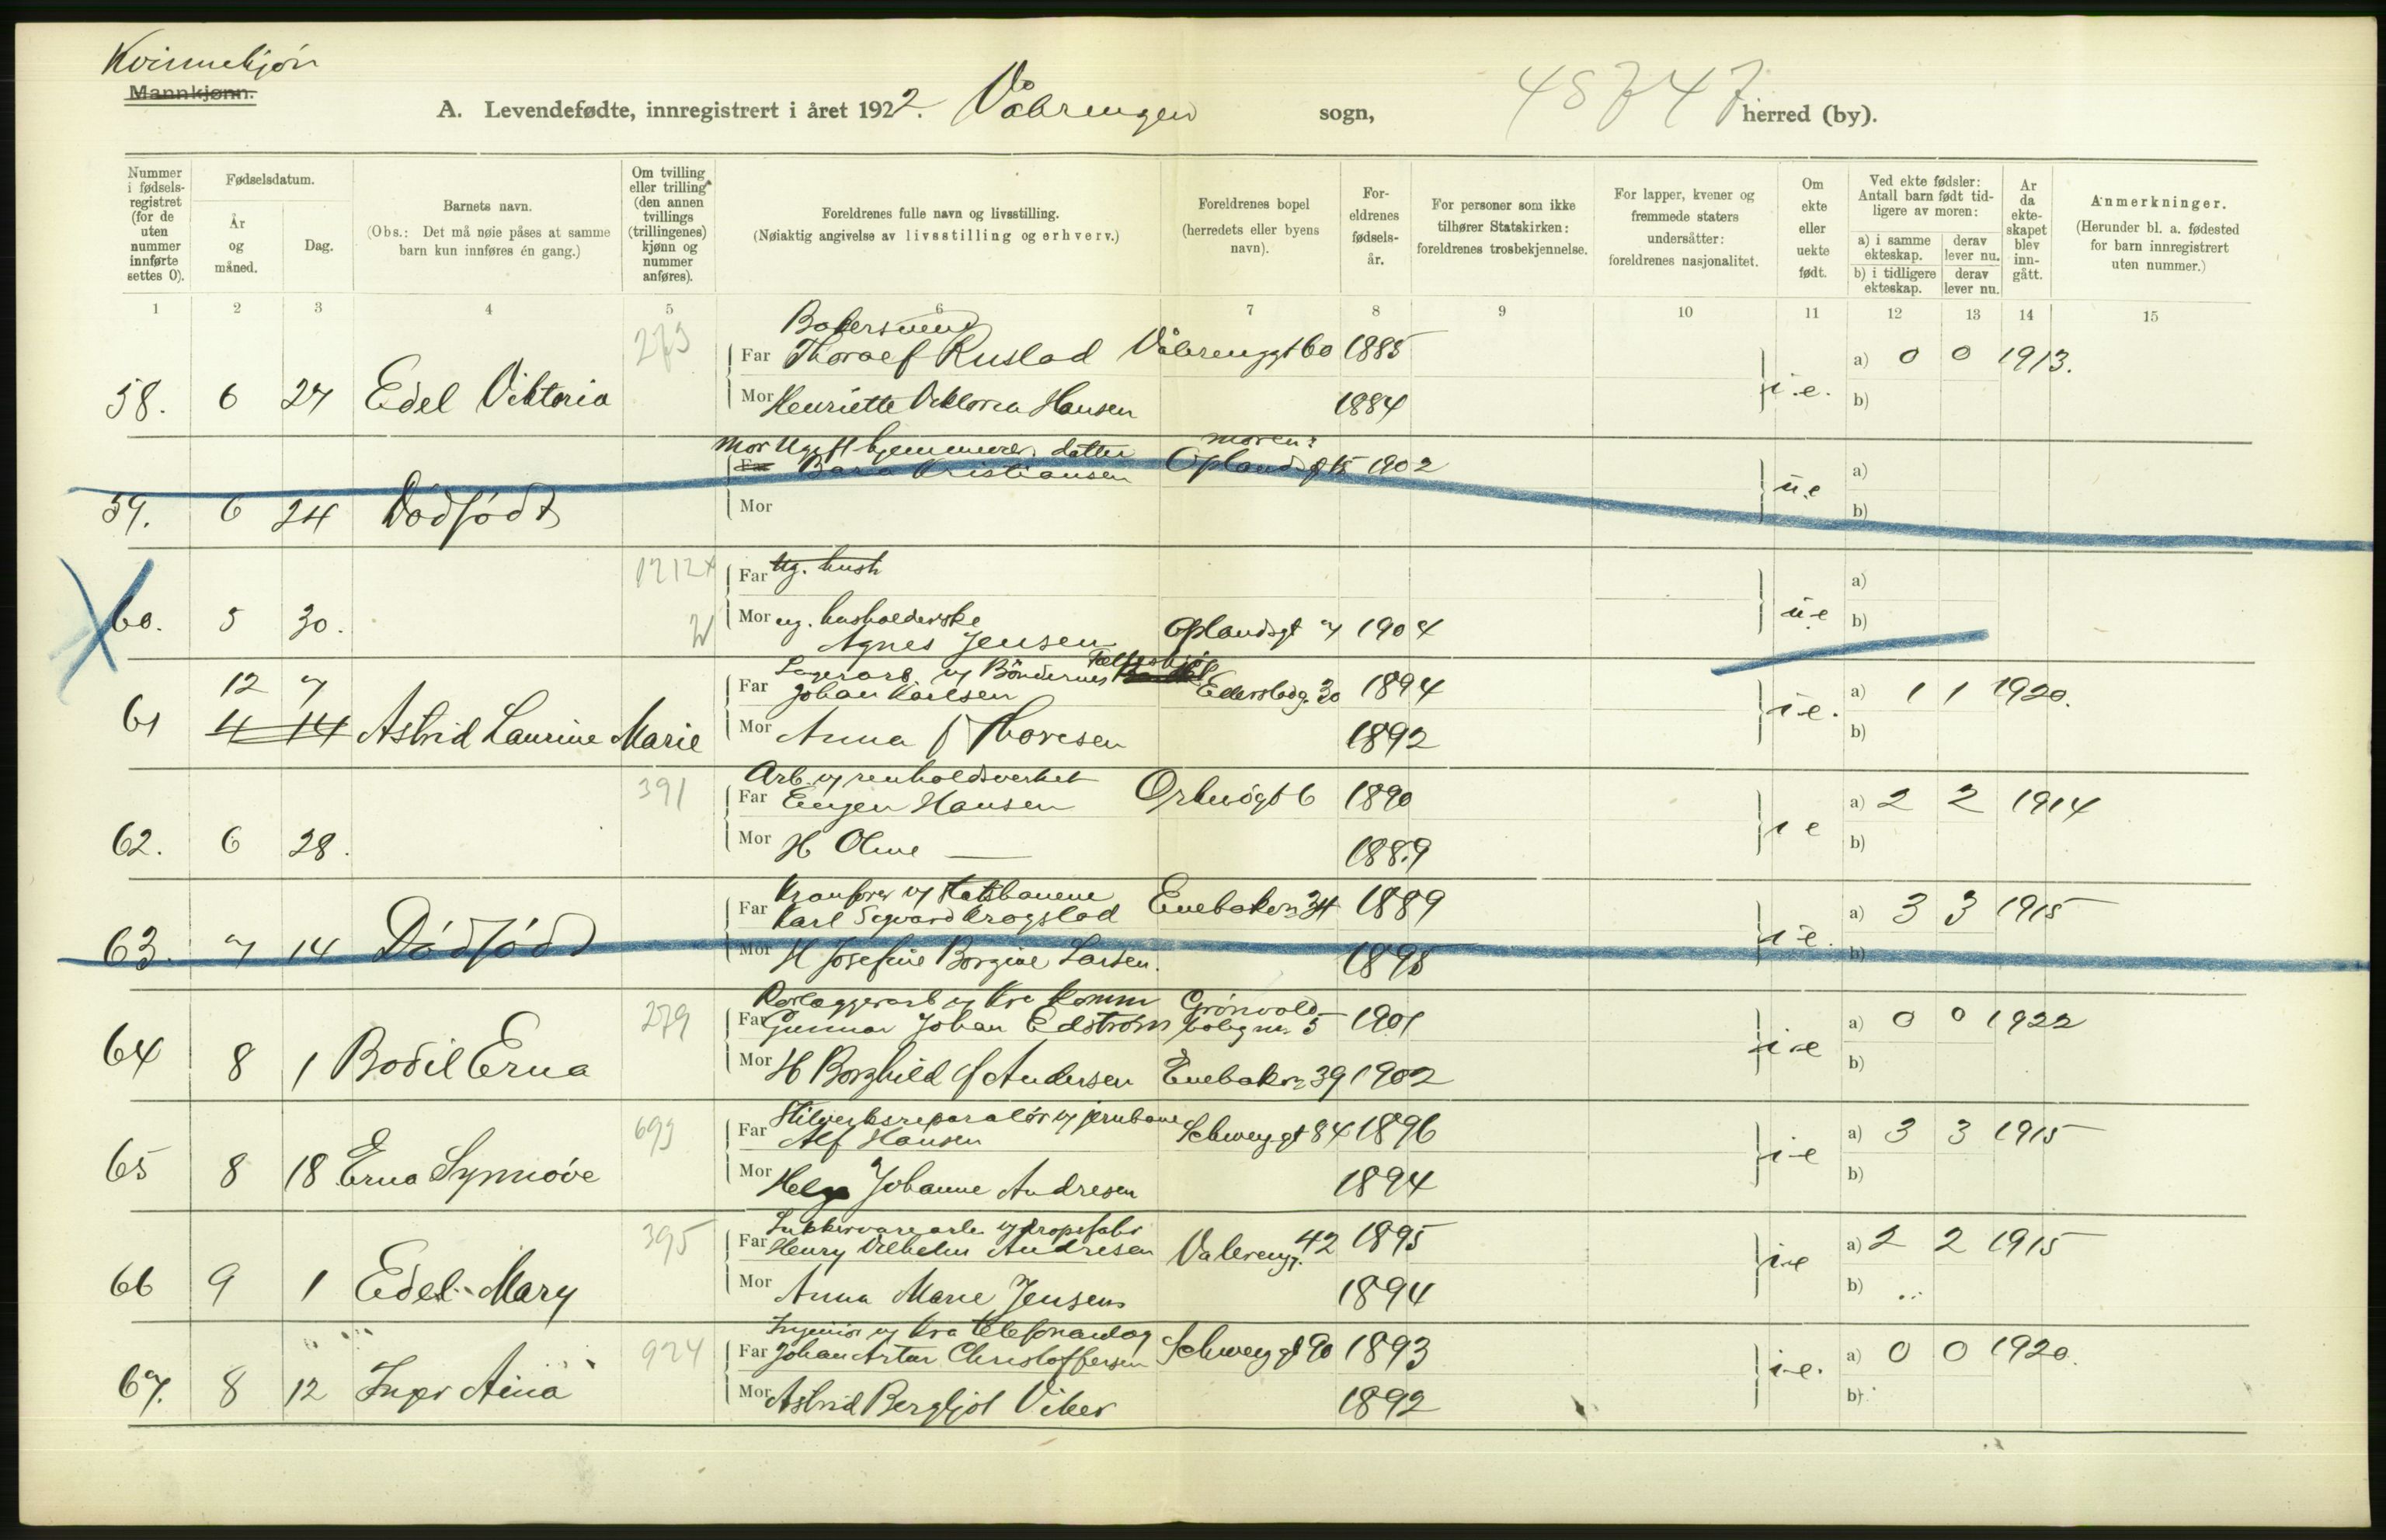 Kvinnekjøn
Mannkjønn.
A. Levendefødte, innregistrert i året 1922. Vålerengen sogn, herred (by).
48747
Nummer i fødselsregistret (for de uten nummer innførte settes 0).
Fødselsdatum.
År og måned.
Dag.
Barnets navn.
(Obs.: Det må nøie påses at samme barn kun innføres én gang.)
Om tvilling eller trilling (den annen tvillings (trillingenes) kjønn og nummer anføres).
Foreldrenes fulle navn og livsstilling.
(Nøiaktig angivelse av livsstilling og erhverv.)
Foreldrenes bopel (herredets eller byens navn).
Foreldrenes fødselsår.
For personer som ikke tilhører Statskirken: foreldrenes trosbekjennelse.
For lapper, kvener og fremmede staters undersåtter: foreldrenes nasjonalitet.
Om ekte eller uekte født.
Ved ekte fødsler: Antall barn født tidligere av moren:
a) i samme ekteskap. derav lever nu.
b) i tidligere ekteskap. derav lever nu.
År da ekteskapet blev inngått.
Anmerkninger.
(Herunder bl. a. fødested for barn innregistrert uten nummer.)
1 2 3 4 5 6 7 8 9 10 11 12 13 14 15
273 Bakersvend
Far Thoralf Rustad Vålerenggt 60 1885 a) 0 0 1913.
58. 6 27 Edel Viktoria Mor Henriette Viktoria Hansen 1884 i.e. b)
Mor Ugift hjemmevær. datter moren:
Far Kristiansen Oplandsgt 15 1902 a)
59. 6 24 Dødfødt Mor u.e b)
1212 Far Ug. hush a)
60. 5 30. Mor ug. husholderske
Agnes Jensen Oplandsgt 7 1904 u.e b)
12 7 Lagerarb. v/ Bøndernes Fælleskjøp
Far Johan Karlsen 30 1894 a) 1 1 1920.
61 4 14 Astrid Laurine Marie Mor Anna f Thoresen 1892 i.e. b)
391 Arb. v/ renholdsverket
Far Eugen Hansen 6 1890 a) 2 2 1914
62. 6 28. Mor H Oline — 1889 i e b)
Kranfører v/ Statsbanene
Far Karl Sigvard Krogstad Enebakv. 34 1889 a) 3 3 1915
63. 7 14 Dødfødt Mor H Josefine Borgine Larsen. 1895 i e. b)
279 Rørlæggerarb v/ Kra komm Grønvold
Far Gunnar Johan Edstrøm bolig nr. 5 1901 a) 0 0 1922
64 8 1 Bodil Erna Mor H Borghild f Andersen Enebakv. 39 1902 i e b)
693 Stilverksreparatør v/ jernbane
Far Alf Hansen Schweigt 84 1896 a) 3 3 1915
65 8 18 Erna Synnøve Mor Helga Johanne Andresen 1894 i e b)
395 Sukkervarearb. v/ dropsfabr
Far Henry Vilhelm Andresen Valerengg. 42 1895 a) 2 2 1915
66 9 1 Edel Mary Mor Anna Marie Jensen 1894 i e b)
924 Ingeniør v/ Kra telefonanlæg
Far Johan Artur Christoffersen Schweigt 90 1893 a) 0 0 1920.
67. 8 12 Inger Aina Mor Astrid Bergljot Viker 1892 i.e. b)